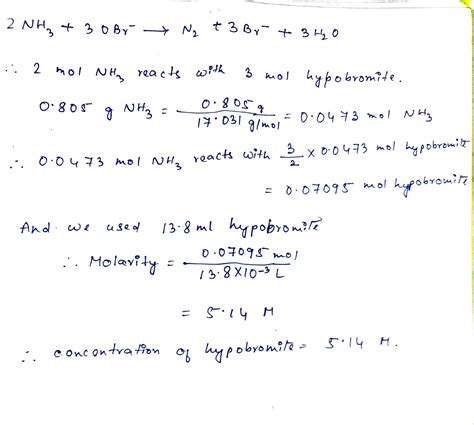 2 NH₃ + 3 OBr⁻ → N₂ + 3 Br⁻ + 3 H₂O
∴ 2 mol NH₃ reacts with 3 mol hypobromite.
0.805 g NH₃ = 0.805 g / 17.031 g/mol = 0.0473 mol NH₃
∴ 0.0473 mol NH₃ reacts with 3/2 × 0.0473 mol hypobromite
= 0.07095 mol hypobromite
And we used 13.8 ml hypobromite
∴ Molarity = 0.07095 mol / 13.8×10⁻³ L
= 5.14 M
∴ concontration of hypobromite = 5.14 M.